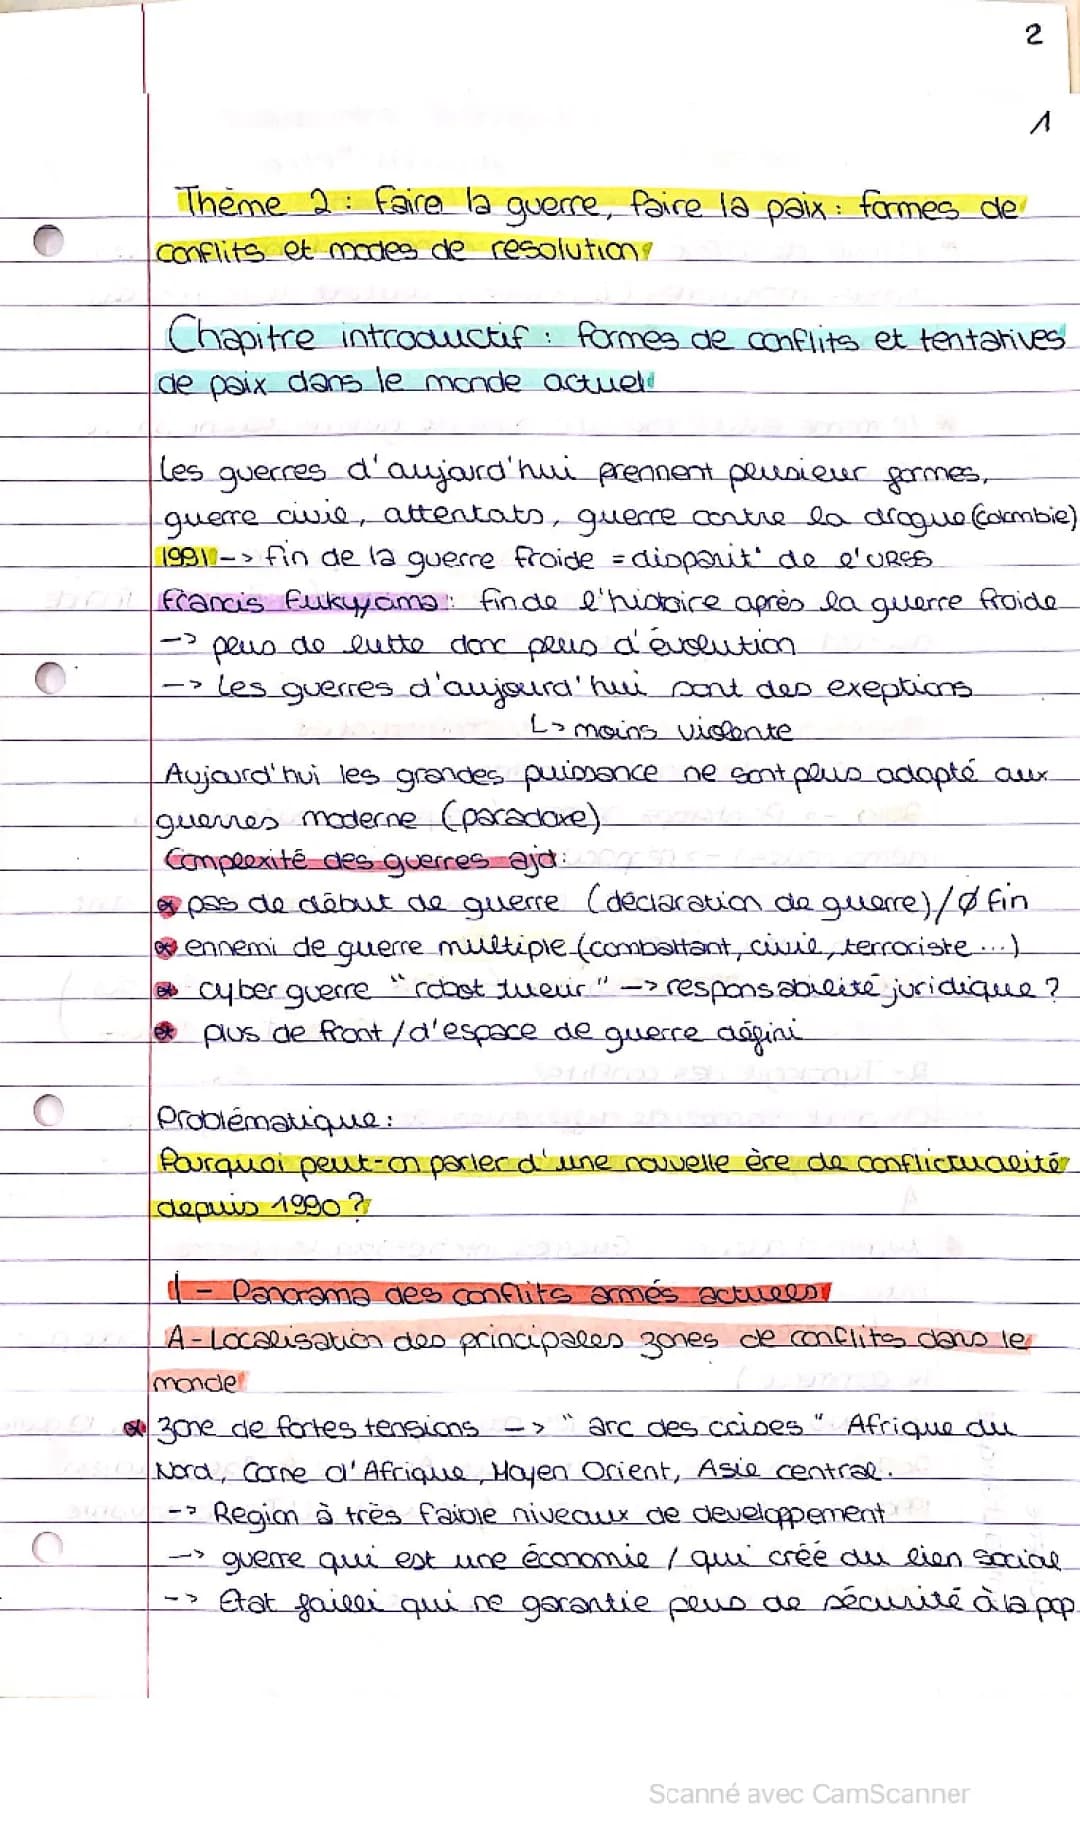 2
1
Thème 2 : Faire la guerre, faire la paix : formes de
conflits et modes de resolution
Chapitre introductif : formes de conflits et tentatives
de paix dans le monde actuel
Les guerres d'aujard'hui prennent plusieur formes,
guerre civile, attentats, guerre contre la drogue (Colombie)
1991 -> fin de la guerre froide = disparit° de l'URSS
Francis Fukuyama : fin de l'histoire après la guerre froide
-> plus de lutte donc plus d'évolution
-> Les guerres d'aujourd'hui sont des exeptions
↳ moins violente
Aujourd'hui les grandes puissance ne sont plus adapté aux
guerres moderne (paradoxe)
Complexité des guerres ajd :
* pas de début de guerre (déclaration de guerre) / Ø fin
* ennemi de guerre multiple (combattant, civile, terroriste ...)
* cyber guerre "robot tueur" -> responsabilité juridique ?
* plus de front / d'espace de guerre défini
Problématique :
Pourquoi peut-on parler d'une nouvelle ère de conflictualité
depuis 1990 ?
I - Panorama des conflits armés actuels
A - Localisation des principales zones de conflits dans le
monde
* zone de fortes tensions -> "arc des crises" Afrique du
Nord, Corne d'Afrique, Moyen Orient, Asie central.
-> Region à très faible niveaux de developpement
-> guerre qui est une économie / qui créé du lien social
-> Etat failli qui ne garantie plus de sécurité à la pop.
Scanné avec CamScanner